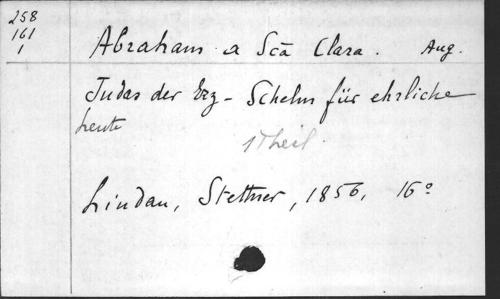 258
161
1
Abraham a Scā Clara. Aug.
Judas der Erz-Schelm für ehrliche
Leute
1 Theil.
Lindau, Stettner, 1856, 16°